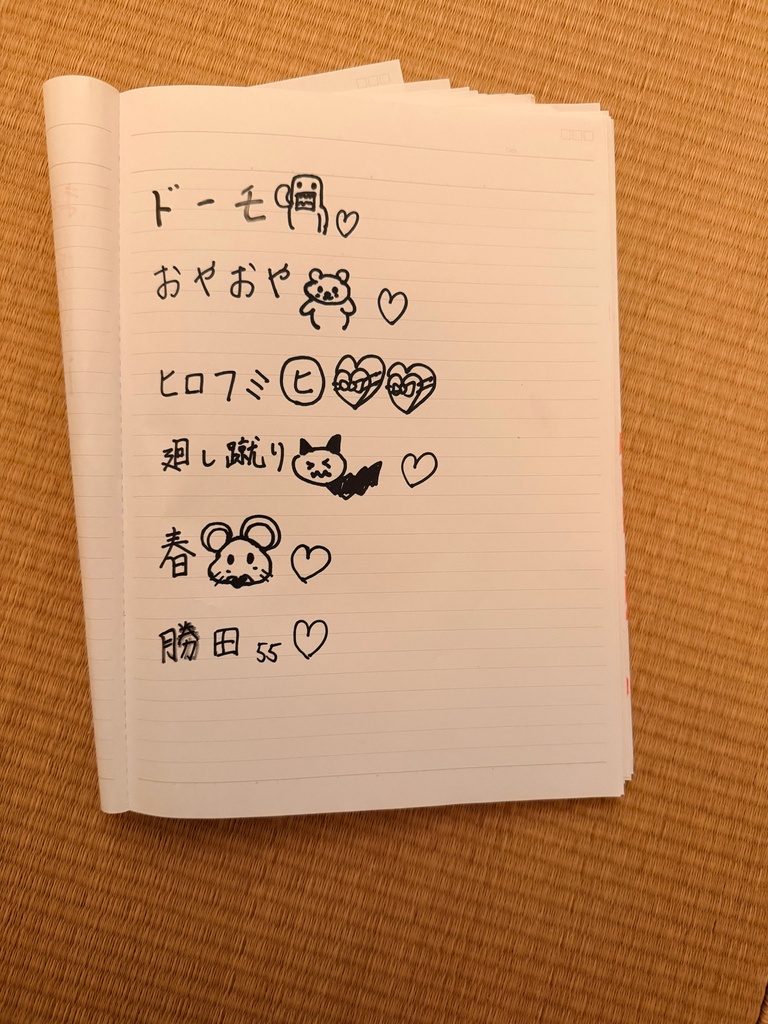 ドーモ♡
おやおや♡
ヒロフミ㋪
廻し蹴り♡
春♡
勝田55♡